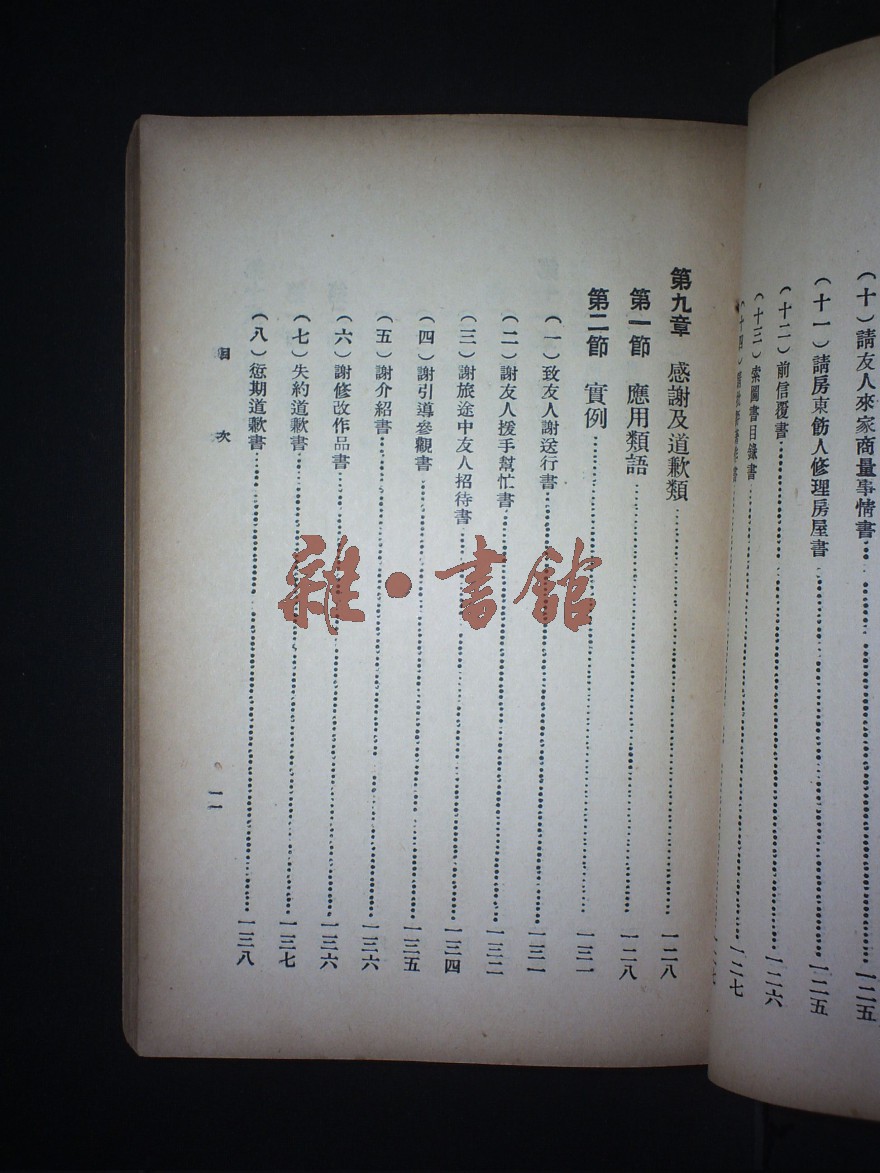 (十)請友人來家商量事情書……一二五
(十一)請房東飭人修理房屋書……一二五
(十二)前信覆書……一二六
(十三)索圖書目錄書……一二七
(十四)
第九章 感謝及道歉類……一二八
第一節 應用類語……一二八
第二節 實例……一三一
(一)致友人謝送行書……一三一
(二)謝友人援手幫忙書……一三二
(三)謝旅途中友人招待書……一三四
(四)謝引導參觀書……一三五
(五)謝介紹書……一三六
(六)謝修改作品書……一三六
(七)失約道歉書……一三七
(八)愆期道歉書……一三八
目次
一一
雜·書館